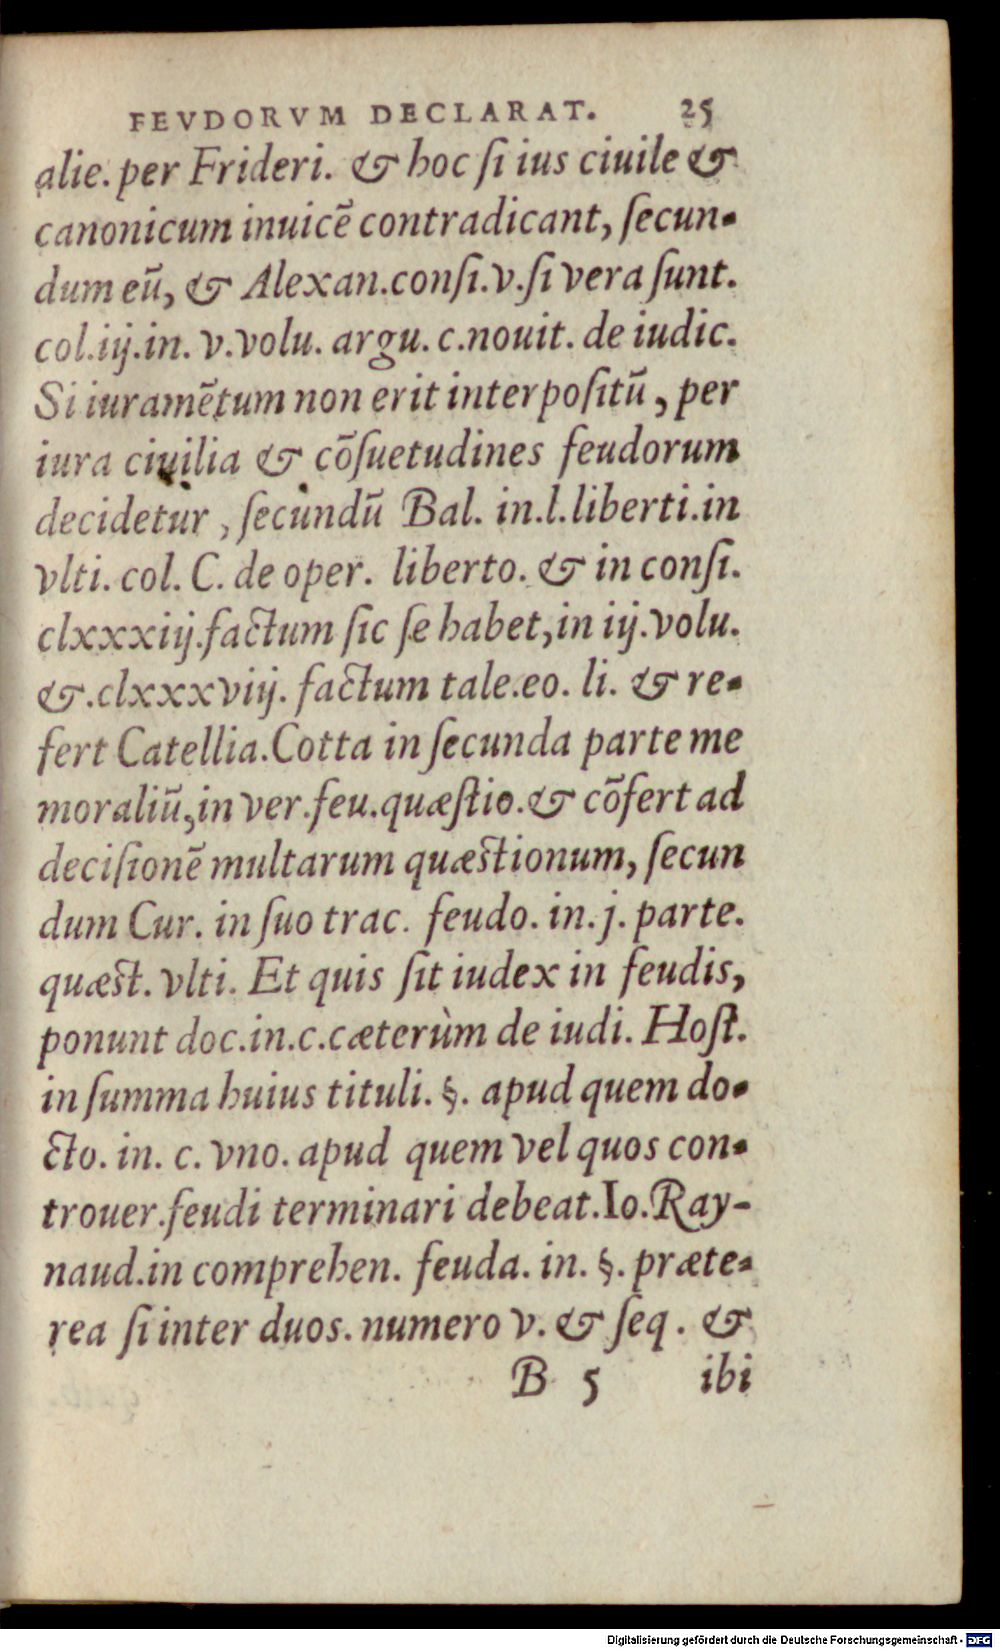 FEVDORVM DECLARAT. 25
alie. per Frideri. & hoc ſi ius ciuile &
canonicum inuicẽ contradicant, ſecun-
dum eũ, & Alexan.conſi.v.ſi vera ſunt.
col.iij.in. v.volu. argu. c.nouit. de iudic.
Si iuramẽtum non erit interpoſitũ, per
iura ciuilia & cõſuetudines feudorum
decidetur, ſecundũ Bal. in.l.liberti.in
vlti. col. C. de oper. liberto. & in conſi.
clxxxiij.factum ſic ſe habet,in iij.volu.
&.clxxxviij. factum tale.eo. li. & re-
fert Catellia.Cotta in ſecunda parte me
moraliũ,in ver.feu.quæſtio.& cõfert ad
deciſionẽ multarum quæſtionum, ſecun
dum Cur. in ſuo trac. feudo. in.j. parte.
quæſt. vlti. Et quis ſit iudex in feudis,
ponunt doc.in.c.cæterùm de iudi. Hoſt.
in ſumma huius tituli. §. apud quem do-
cto. in. c. vno. apud quem vel quos con-
trouer.feudi terminari debeat.Io.Ray-
naud.in comprehen. feuda. in. §. præte-
rea ſi inter duos. numero v. & ſeq. &
B 5 ibi
Digitalisierung gefördert durch die Deutsche Forschungsgemeinschaft - DFG